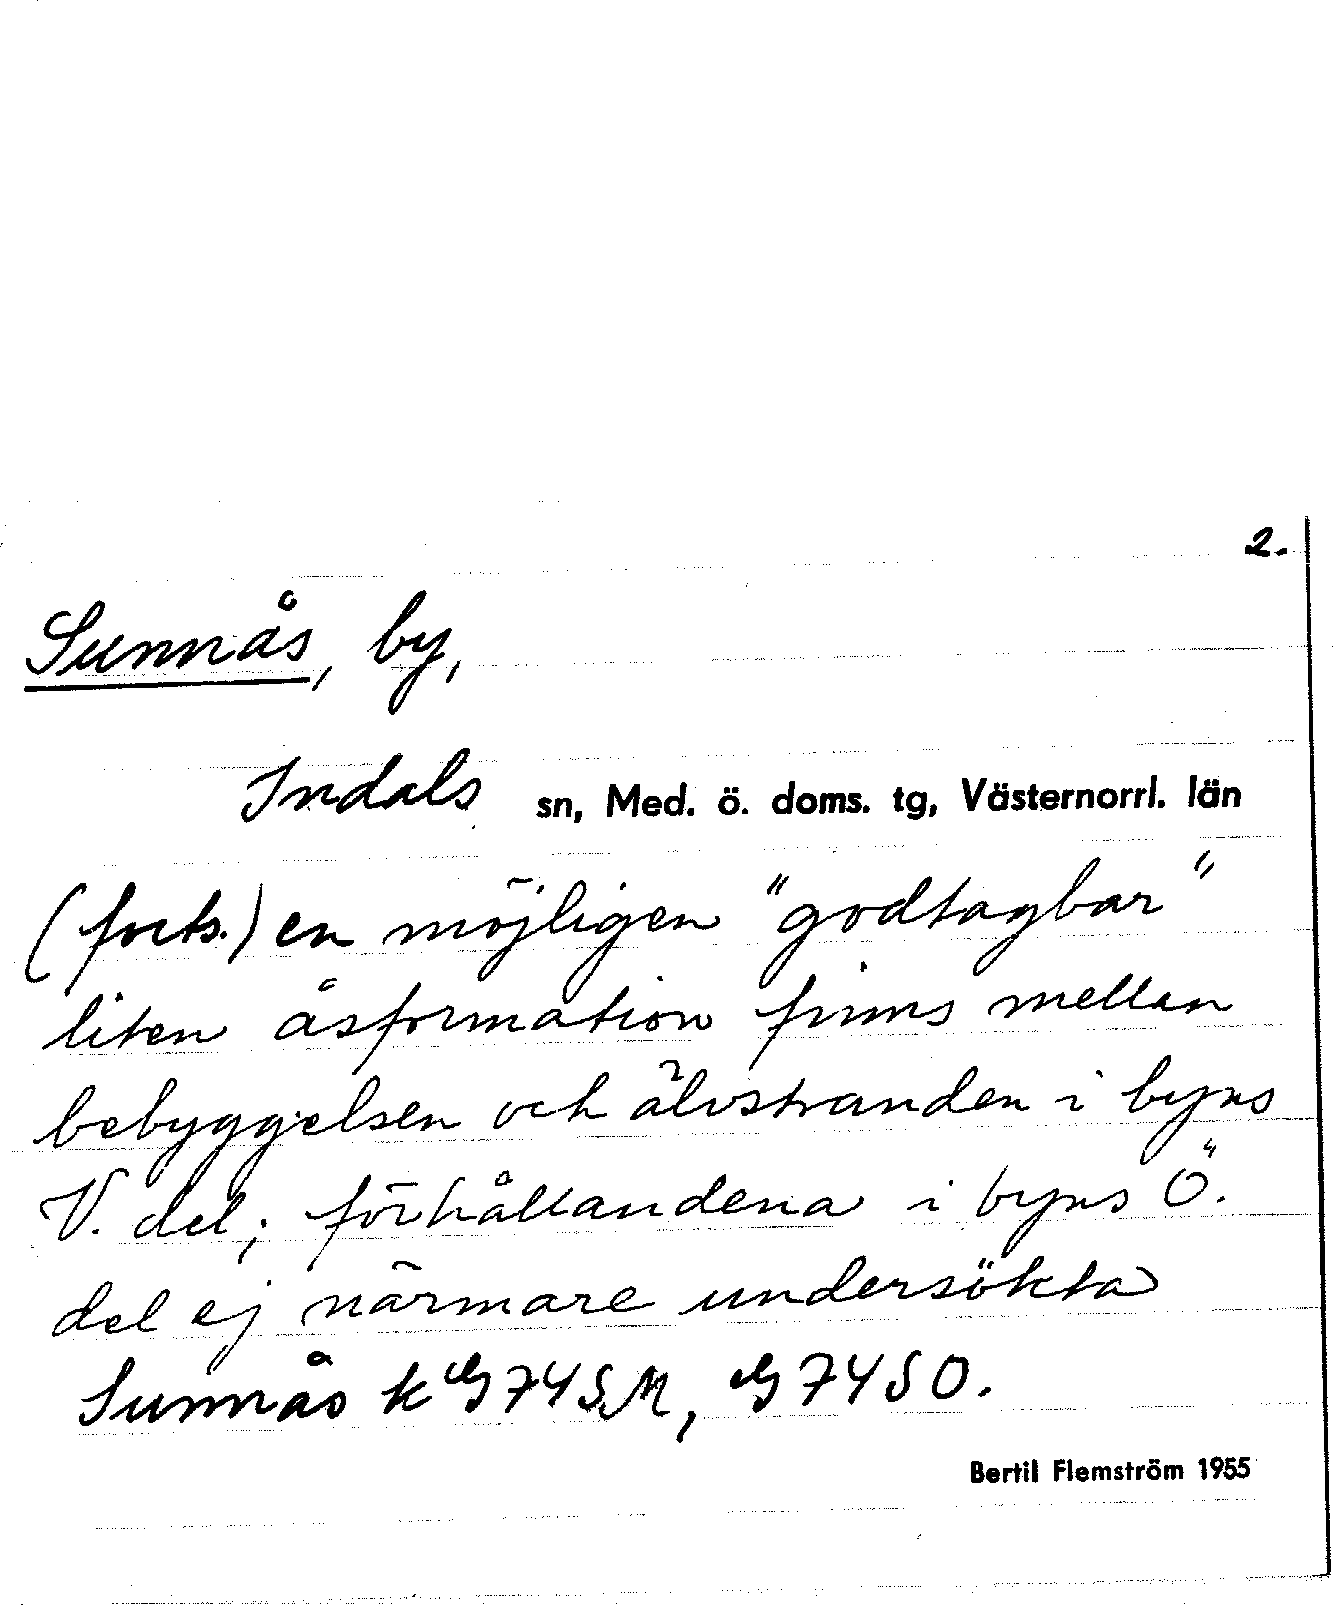 2.
Sunnås, by,
Indals sn, Med. ö. doms. tg, Västernorrl. län
(forts.) en möjligen "godtagbar"
liten åsformation finns mellan
bebyggelsen och älvstranden i byns
V. del; förhållandena i byns Ö.
del ej närmare undersökta
Sunnås k G 74 S.M, G 74 S O.
Bertil Flemström 1955